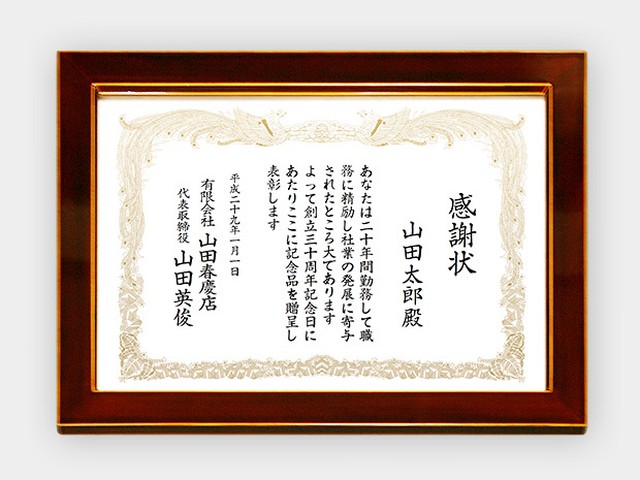 感謝状
山田太郎殿
あなたは二十年間勤務して職
務に精励し社業の発展に寄与
されたところ大であります
よって創立三十周年記念日に
あたりここに記念品を贈呈し
表彰します
平成二十九年一月一日
有限会社 山田春慶店
代表取締役 山田英俊